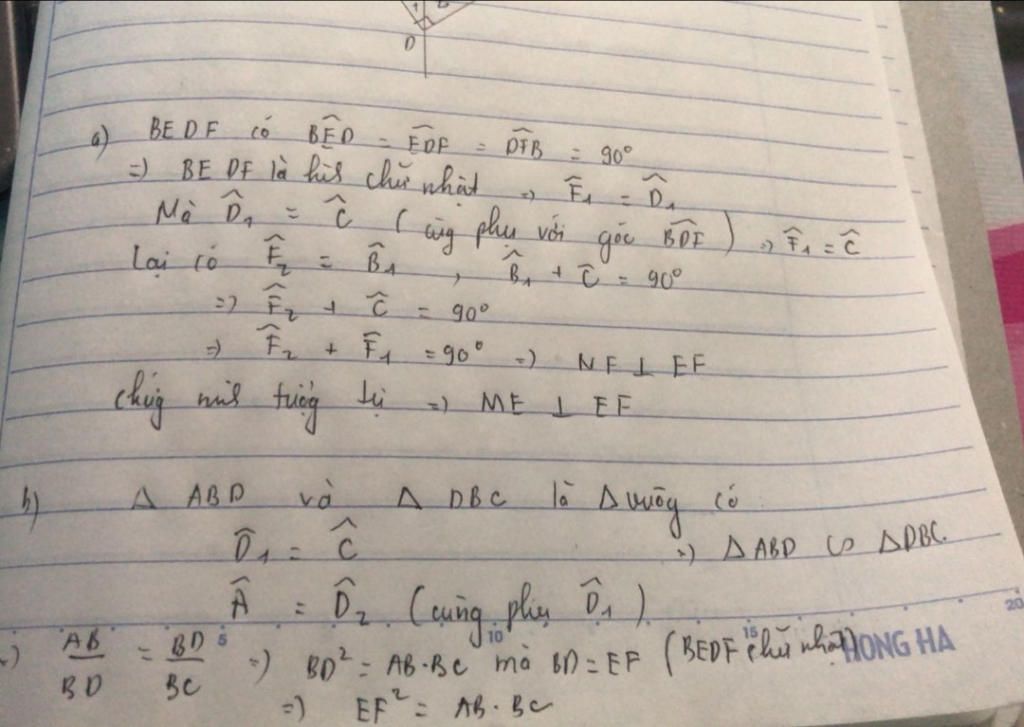 1 2
D
a) BEDF có B̂ÊD = ÊDF = D̂FB = 90°
=) BEDF là hình chữ nhật => F̂₁ = D̂₁
Mà D̂₁ = Ĉ (cùng phụ với góc B̂DF) => F̂₁ = Ĉ
Lại có F̂₂ = B̂₁ , B̂₁ + Ĉ = 90°
=> F̂₂ + Ĉ = 90°
=> F̂₂ + F̂₁ = 90° => NF ⊥ EF
chứng minh tương tự => ME ⊥ EF
b) Δ ABD và Δ DBC là Δ vuông có
D̂₁ = Ĉ
=> ΔABD ∽ ΔDBC.
Â = D̂₂ (cùng phụ D̂₁)
=> AB/BD = BD/BC => BD² = AB.BC mà BD = EF (BEDF chữ nhật)
=> EF² = AB.BC
5 10 15 20
HONG HA